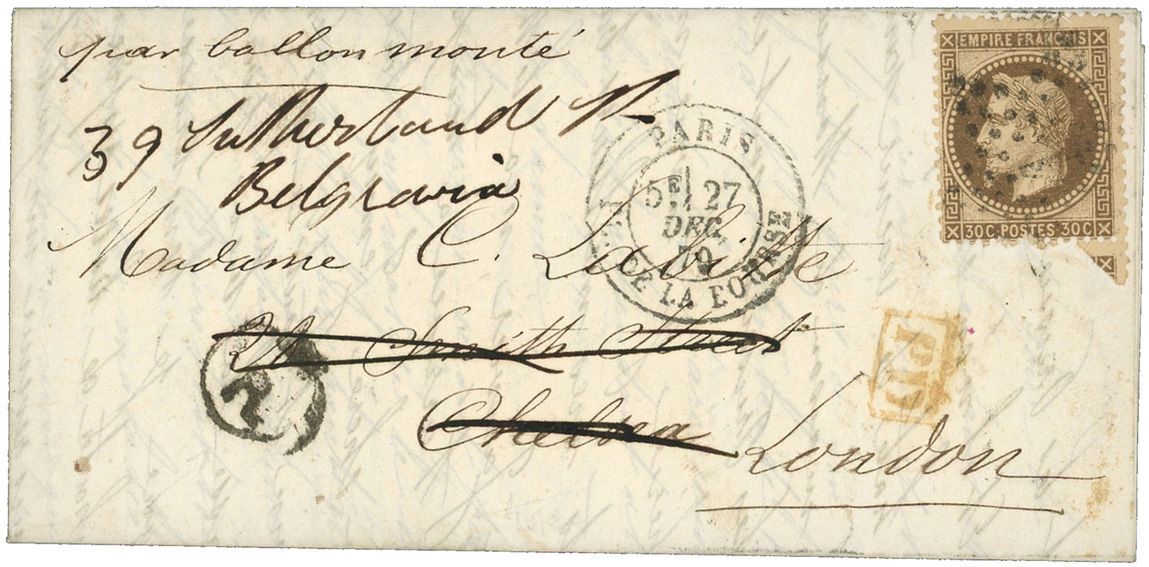 par ballon monté
39 Sutherland St.
Belgravia
Madame C. Labitte
Smith Street
Chelsea
London
PARIS
5E 27
DEC.
70
DE LA BOURSE
EMPIRE FRANÇAIS
30C. POSTES 30C
PD